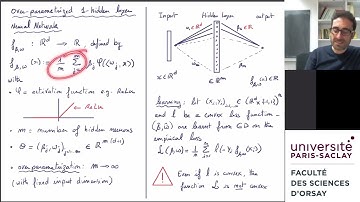 Over-parametrized 1-hidden layer
Neural Networks
f_{β,ω} : ℝ^d → ℝ, defined by
f_{β,ω}(x) := 1/m Σ β_j φ(⟨ω_j, x⟩)
with
• φ = activation function e.g. ReLU
ReLU
• m = number of hidden neurons
• θ = (β_j, ω_j) ∈ ℝ^{m(d+1)}
• overparametrization: m → ∞
(with fixed input dimension)
Input Hidden layer output
x ∈ ℝ^d
∈ ℝ^m
Learning: let (x_i, y_i) ∈ (ℝ^d × {-1,+1})^n
and ℓ be a convex loss function
(β, ω) are learnt from GD on the
empirical loss
L(β, ω) = 1/n Σ ℓ(-Y_i f_{β,ω}(X_i))
! Even if ℓ is convex, the
function L is not convex
université
PARIS-SACLAY
FACULTÉ
DES SCIENCES
D'ORSAY